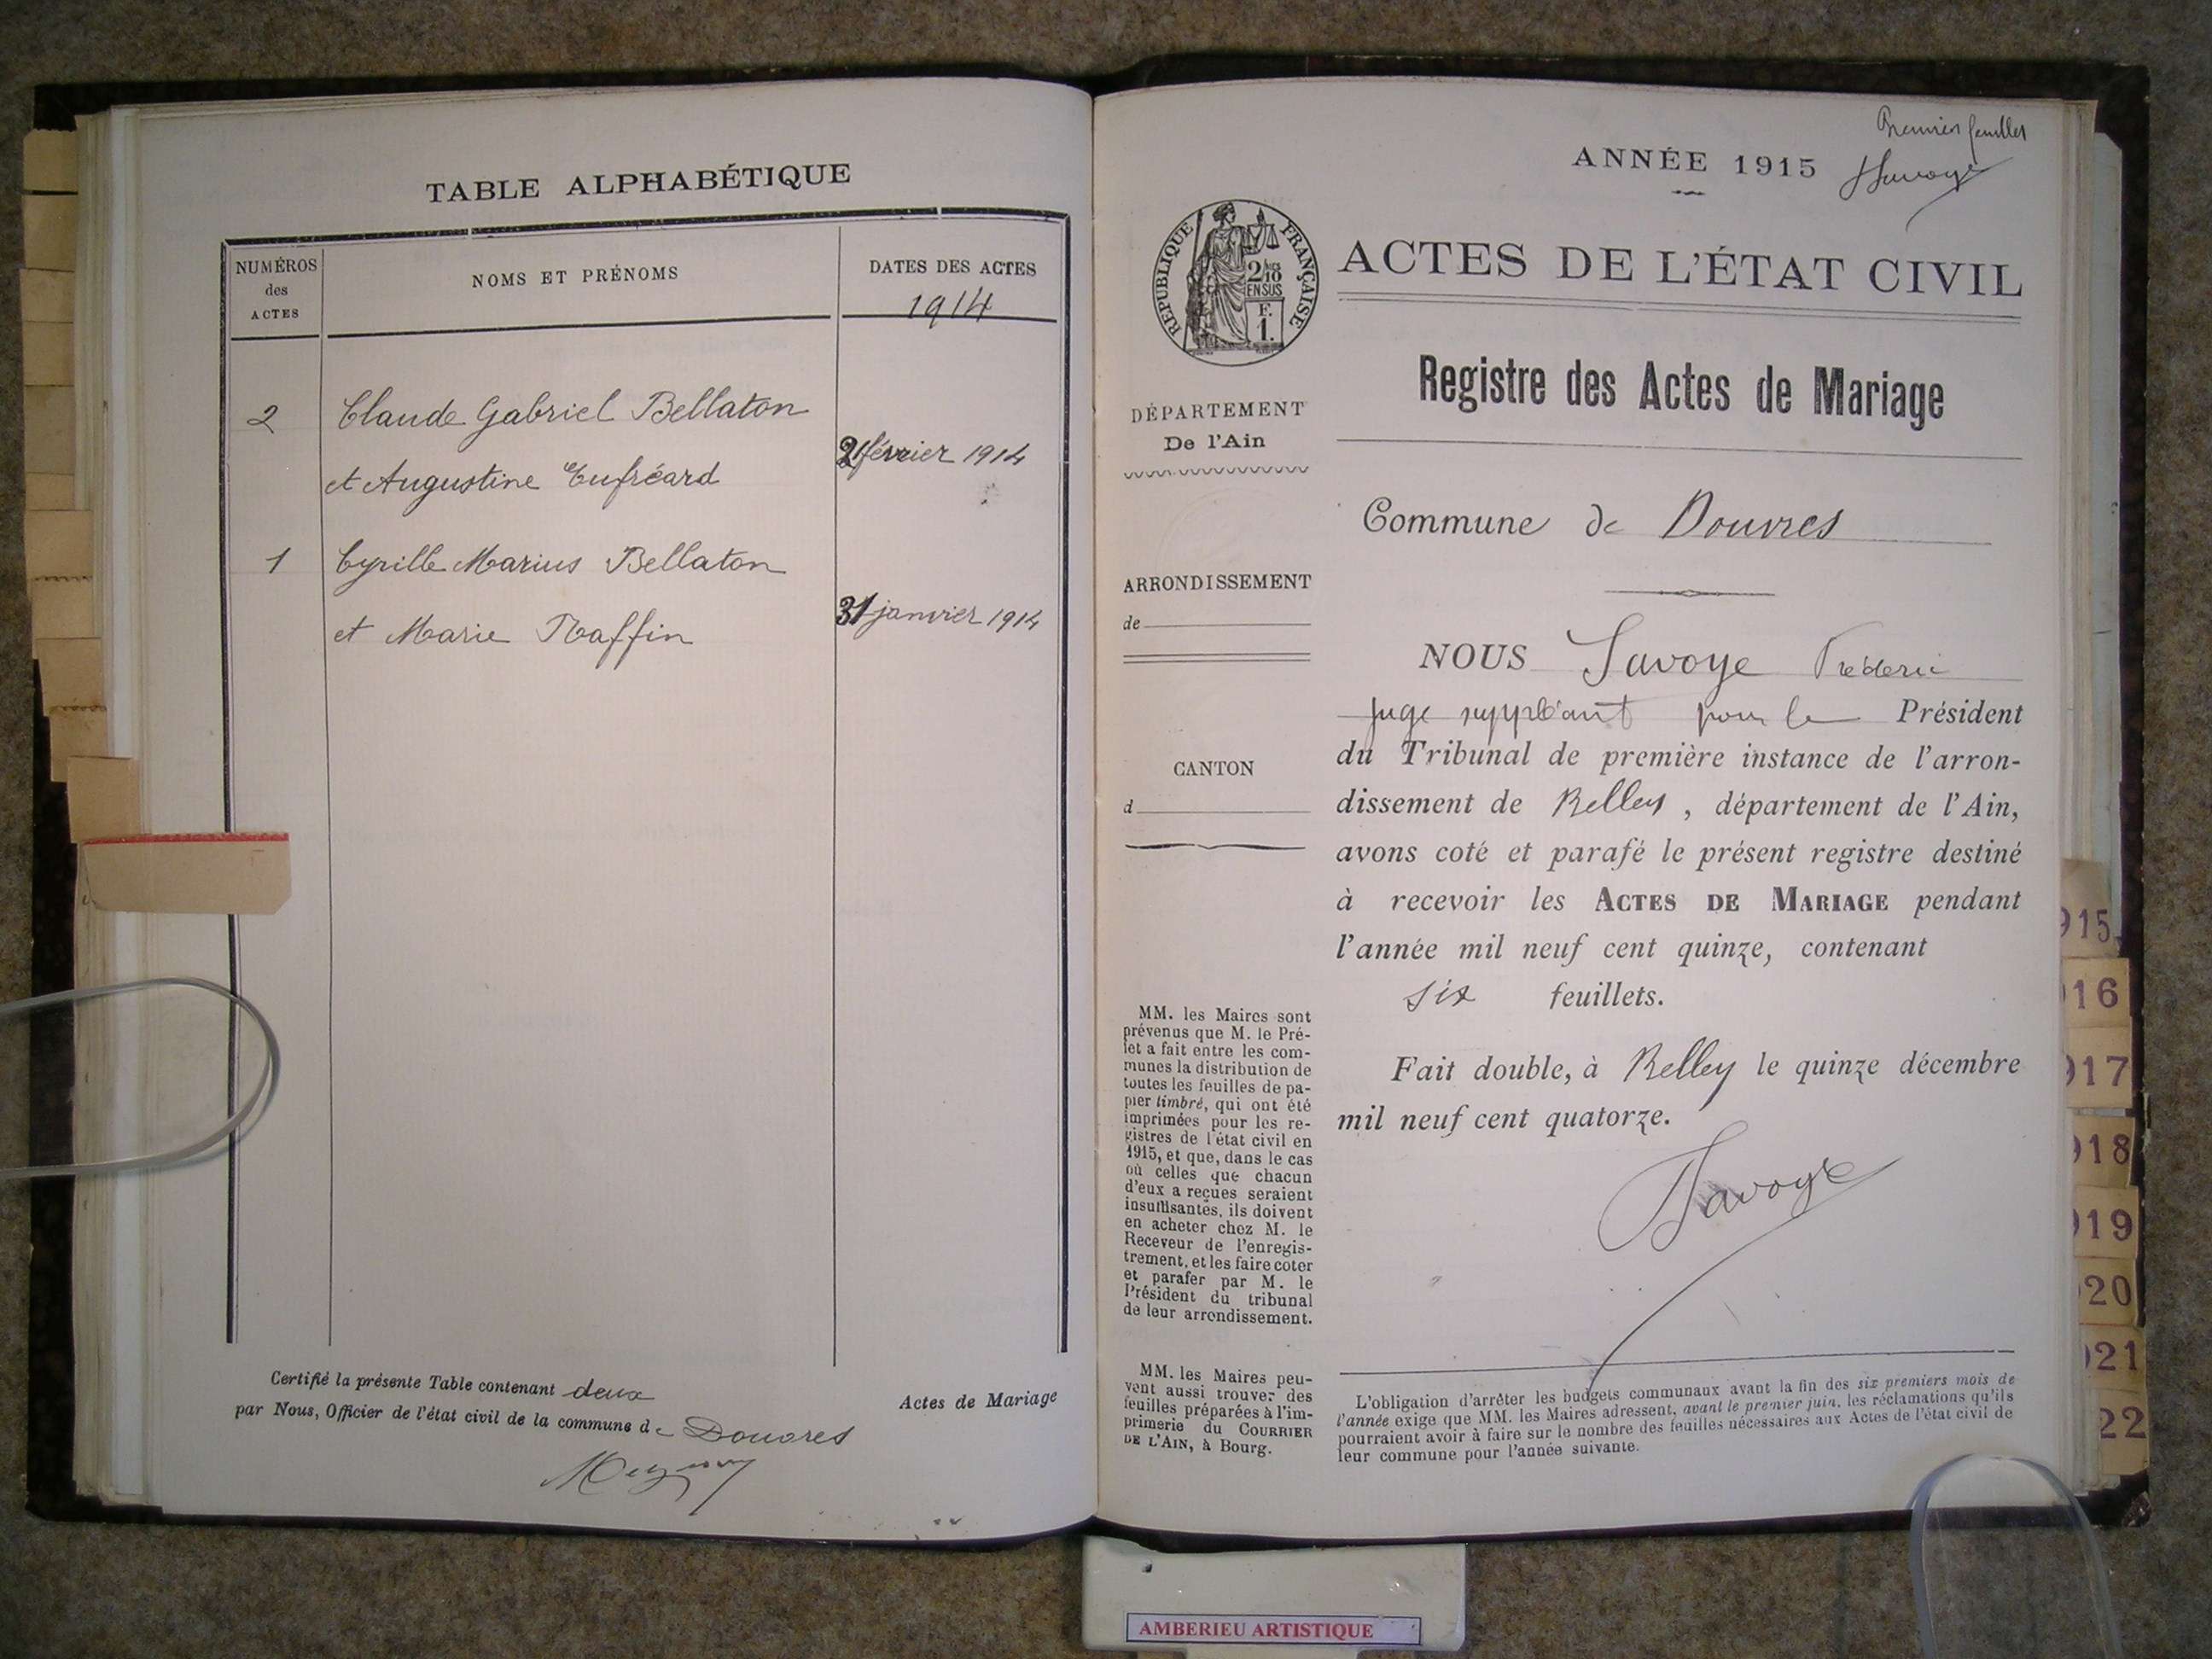 TABLE ALPHABÉTIQUE
NUMÉROS
des
ACTES
NOMS ET PRÉNOMS
DATES DES ACTES
1914
2
Claude Gabriel Bellaton
et Augustine
2 février 1914
1
Cyrille Marius Bellaton
et Marie
31 janvier 1914
Certifié la présente Table contenant deux
Actes de Mariage
par Nous, Officier de l'état civil de la commune de Douvres
Premier feuillet
ANNÉE 1915
Savoye
RÉPUBLIQUE FRANÇAISE
2/10
EN SUS
F.
1.
ACTES DE L'ÉTAT CIVIL
Registre des Actes de Mariage
DÉPARTEMENT
De l'Ain
ARRONDISSEMENT
de
CANTON
d
MM. les Maires sont
prévenus que M. le Pré-
fet a fait entre les com-
munes la distribution de
toutes les feuilles de pa-
pier timbré, qui ont été
imprimées pour les re-
gistres de l'état civil en
1915, et que, dans le cas
où celles que chacun
d'eux a reçues seraient
insuffisantes, ils doivent
en acheter chez M. le
Receveur de l'enregis-
trement, et les faire coter
et parafer par M. le
Président du tribunal
de leur arrondissement.
MM. les Maires peu-
vent aussi trouver des
feuilles préparées à l'im-
primerie du COURRIER
DE L'AIN, à Bourg.
Commune de Douvres
NOUS Savoye Frédéric
juge suppléant pour le Président
du Tribunal de première instance de l'arron-
dissement de Belley, département de l'Ain,
avons coté et parafé le présent registre destiné
à recevoir les ACTES DE MARIAGE pendant
l'année mil neuf cent quinze, contenant
six feuillets.
Fait double, à Belley le quinze décembre
mil neuf cent quatorze.
Savoye
L'obligation d'arrêter les budgets communaux avant la fin des six premiers mois de
l'année exige que MM. les Maires adressent, avant le premier juin, les réclamations qu'ils
pourraient avoir à faire sur le nombre des feuilles nécessaires aux Actes de l'état civil de
leur commune pour l'année suivante.
915
916
917
918
919
920
921
922
AMBERIEU ARTISTIQUE